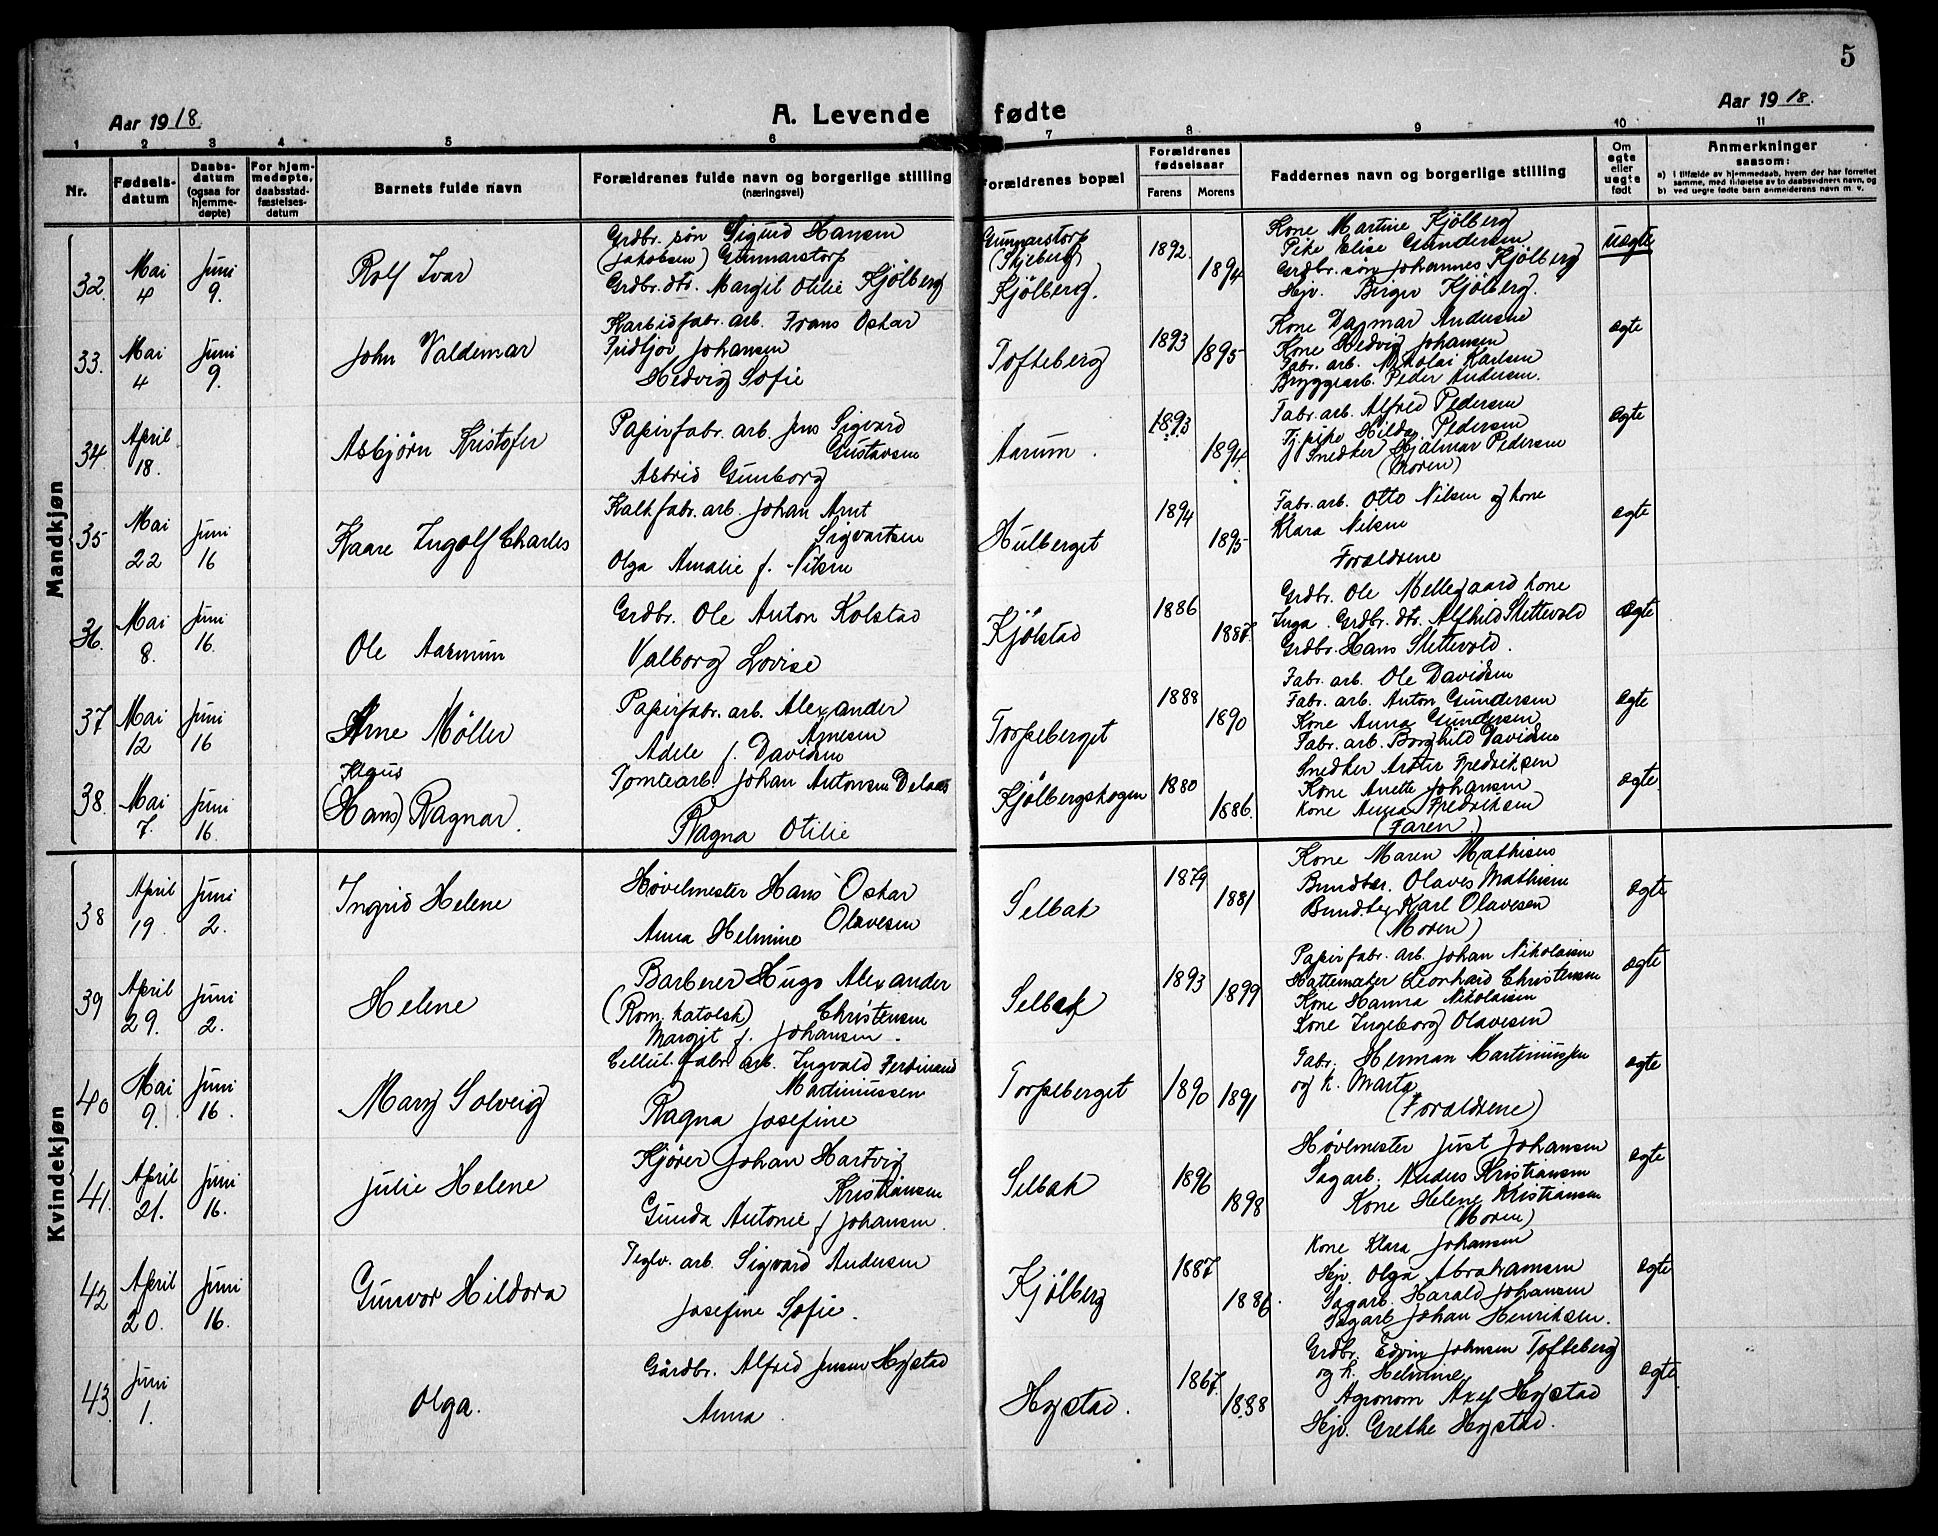 5
Aar 1918.
A. Levende fødte
Aar 1918.
1 2 3 4 5 6 7 8 9 10 11
Nr.
Fødsels-
datum
Daabs-
datum
(ogsaa for
hjemme-
døpte)
For hjem-
medøpte,
daabsstad-
fæstelses-
datum
Barnets fulde navn
Forældrenes fulde navn og borgerlige stilling
(næringsvei)
Forældrenes bopæl
Forældrenes
fødselsaar
Farens Morens
Faddernes navn og borgerlige stilling
Om
egte
eller
uegte
født
Anmerkninger
saasom:
a) i tilfælde av hjemmedaab, hvem der har forrettet
samme, med tilføielse av to daabsvidners navn, og
b) ved uegte fødte barn anmelderens navn m. v.
Mandkjøn
32. Mai 4 Juni 9. Rolf Ivar
Grdbr. søn Sigurd Hansen
(Jakobsen) Gunnarstorp
Grdbr. dtr. Margit Otilie Kjølberg
Gunnarstorp
(Skjeberg)
Kjølberg.
1892. 1894
Kone Martine Kjølberg
Pike Elise Gundersen
Grdbr. søn Johannes Kjølberg
Hjv. Birger Kjølberg.
uegte
33. Mai 4 Juni 9. John Valdemar
Karbidfabr. arb. Frans Oskar
Fridtjov Johansen
Hedvig Sofie
Tofteberg
1893 1895
Kone Dagmar Andersen
Kone Hedvig Johansen
Fabr. arb. Nikolai Karlsen
Bryggearb. Peder Andersen.
egte
34. April 18. Asbjørn Kristofer
Papirfabr. arb. Jens Sigvard
Gustavsen
Astrid Gunborg
Aarum.
1893 1894.
Fabr. arb. Alfred Pedersen
Tj. pike Hilda Pedersen
Snedker Hjalmar Pedersen
(Moren)
egte
35 Mai 22 Juni 16 Kaare Ingolf Charles
Kalkfabr. arb. Johan Arnt
Sigvartsen
Olga Amalie f. Nilsen
Hulberget
1894 1895
Fabr. arb. Otto Nilsen og kone
Klara Nilsen
Forældrene
egte
36. Mai 8. Juni 16. Ole Aarmun
Grdbr. Ole Anton Kolstad
Valborg Lovise
Kjølstad
1886 1887.
Grdbr. Ole Mellegaard kone
Inga. Grdbr. dtr. Alfhild Slettevold
Grdbr. Hans Slettevold.
egte
37 Mai 12 Juni 16 Arne Møller
Papirfabr. arb. Alexander
Arnesen
Adele f. Davidsen
Torpeberget
1888 1890
Fabr. arb. Ole Davidsen
Fabr. arb. Anton Gundersen
Kone Anna Gundersen
Fabr. arb. Borghild Davidsen
egte
38. Mai 7. Juni 16.
Klaus
(Hans) Ragnar.
Tomtearb. Johan Antonsen Delaas
Ragna Otilie
Kjølbergskogen
1880 1886.
Snedker Arthur Fredriksen
Kone Anette Johansen
Kone Anna Fredriksen
(Faren)
egte
Kvindekjøn
38 April 19. Juni 2. Ingrid Helene
Høvelmester Hans Oskar
Olavesen
Anna Helmine
Selbak
1879 1881
Kone Maren Mathisen
Bundtbr. Olaves Mathisen
Karl Olavesen
(Moren)
egte
39 April 29. Juni 2. Helene
Barberer Hugo Alexander
(Rom. katolsk) Christensen
Margit f. Johansen.
Selbak
1893 1899
Papirfabr. arb. Johan Nikolaisen
Hattemaker Leonhard Christensen
Kone Hanna Nikolaisen
Kone Ingeborg Olavesen
egte
40 Mai 9. Juni 16. Mary Solveig
Cellul. fabr. arb. Ingvald Ferdinand
Martiniussen
Ragna Josefine
Torpeberget
1890 1891
Fabr. Herman Martiniussen
og k. Marta
(Forældrene)
egte
41. April 21. Juni 16. Julie Helene
Kjører Johan Hartvig
Kristiansen
Gunda Antonie f. Johansen.
Selbak
1896 1898
Høvlmester Just Johansen
Sagarb. Anders Kristiansen
Kone Helene Kristiansen
(Moren)
egte
42 April 20. Juni 16. Gunvor Hildora
Teglv. arb. Sigvard Andersen
Josefine Sofie.
Kjølberg
1887 1886.
Kone Klara Johansen
Hjv. Olga Abrahamsen
Sagarb. Harald Johansen
Sagarb. Johan Henriksen.
egte
43 Juni 1. Olga.
Gårdbr. Alfred Jensen Hystad
Anna.
Hystad.
1867. 1888
Grdbr. Edvin Johnsen Tofteberg
og k. Helmine
Agronom Axel Hystad
Hjv. Grethe Hystad.
egte